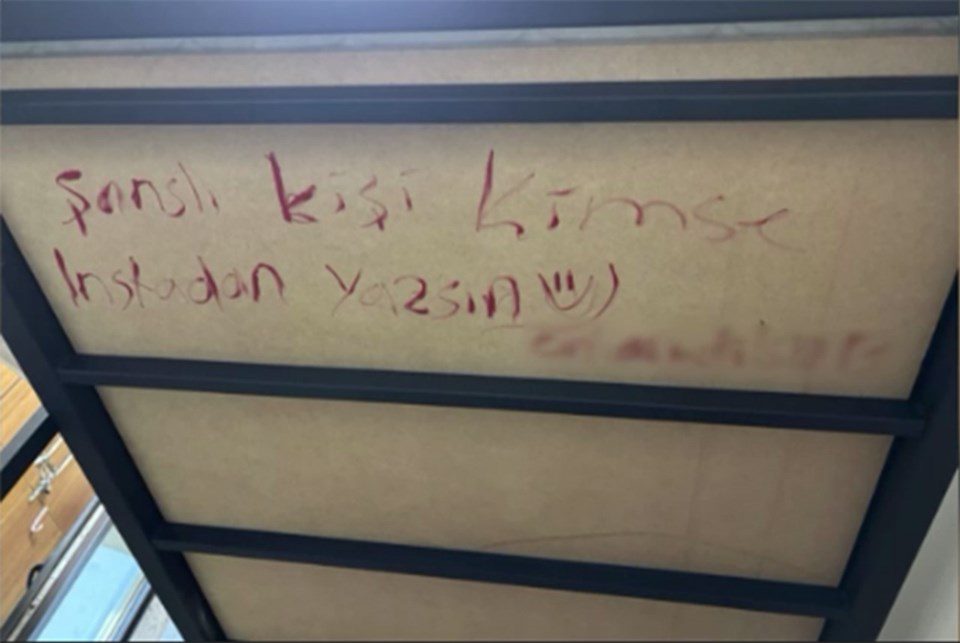 Şanslı kişi kimse
Instadan yazsın :)